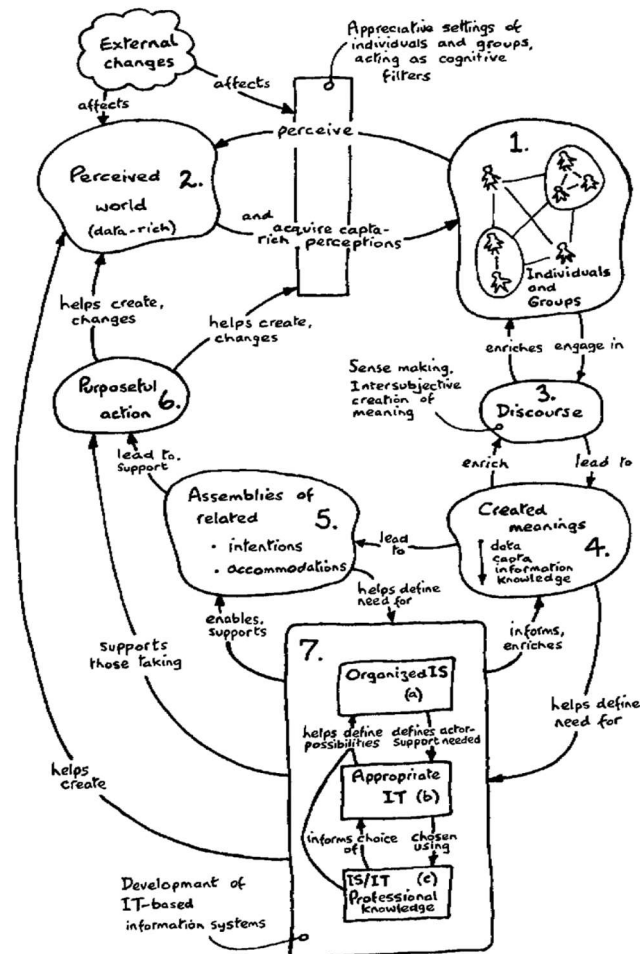 External
changes
Appreciative settings of
individuals and groups,
acting as cognitive
filters
affects
affects
perceive
1.
Perceived
world
2.
(data-rich)
and
acquire capta-
rich perceptions
Individuals
and
Groups
helps create,
changes
helps create,
changes
enriches
engage in
Purposeful
action
6.
Sense making.
Intersubjective
creation of
meaning
3.
Discourse
lead to.
support
enrich
lead to
Assemblies of
related
5.
• intentions
• accommodations
lead
to
Created
meanings
4.
data
capta
information
knowledge
helps define
need for
enables,
supports
informs,
enriches
7.
Organized IS
(a)
supports
those taking
helps define
possibilities
defines actor-
support needed
helps define
need for
Appropriate
IT (b)
helps
create
informs choice
of
chosen
using
IS/IT (c)
Professional
knowledge
Development of
IT-based
information systems